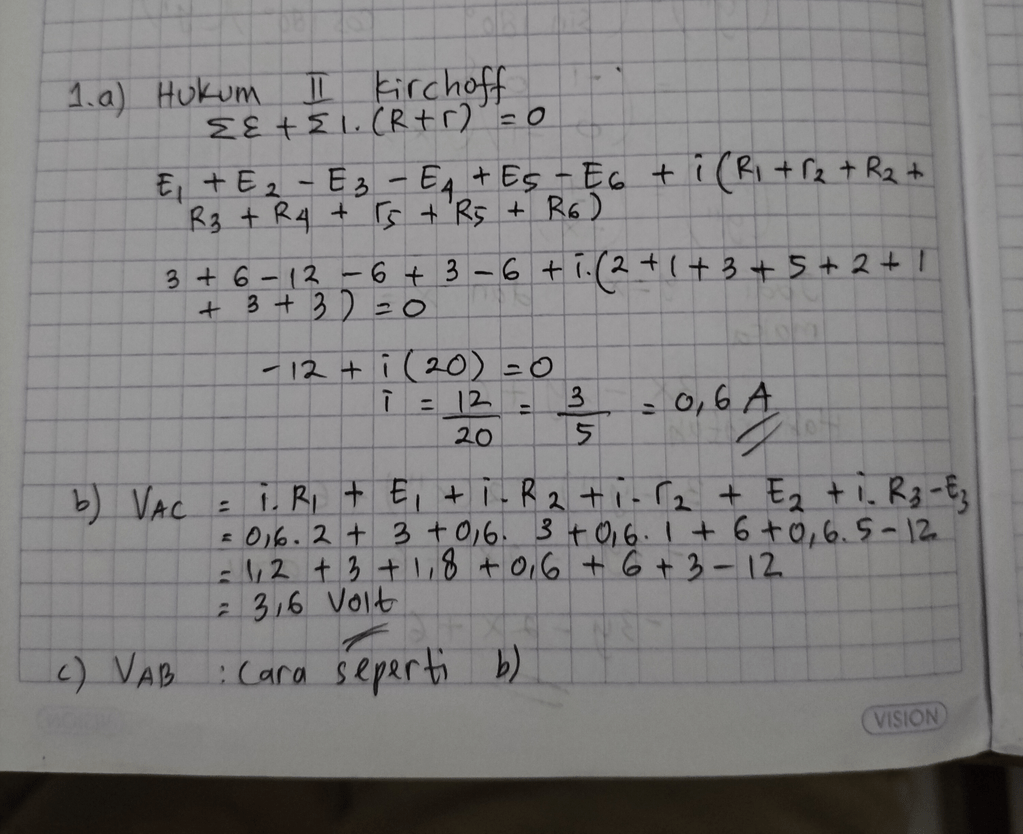 1.a) Hukum II Kirchoff
Σε + Σ I. (R+r) = 0
E₁ + E₂ - E₃ - E₄ + E₅ - E₆ + i (R₁ + r₂ + R₂ +
R₃ + R₄ + r₅ + R₅ + R₆)
3 + 6 - 12 - 6 + 3 - 6 + i.(2 + 1 + 3 + 5 + 2 + 1
+ 3 + 3) = 0
-12 + i (20) = 0
i = 12/20 = 3/5 = 0,6 A
b) VAC = i. R₁ + E₁ + i. R₂ + i. r₂ + E₂ + i. R₃ - E₃
= 0,6. 2 + 3 + 0,6. 3 + 0,6. 1 + 6 + 0,6. 5 - 12
= 1,2 + 3 + 1,8 + 0,6 + 6 + 3 - 12
= 3,6 Volt
c) VAB : Cara seperti b)
VISION